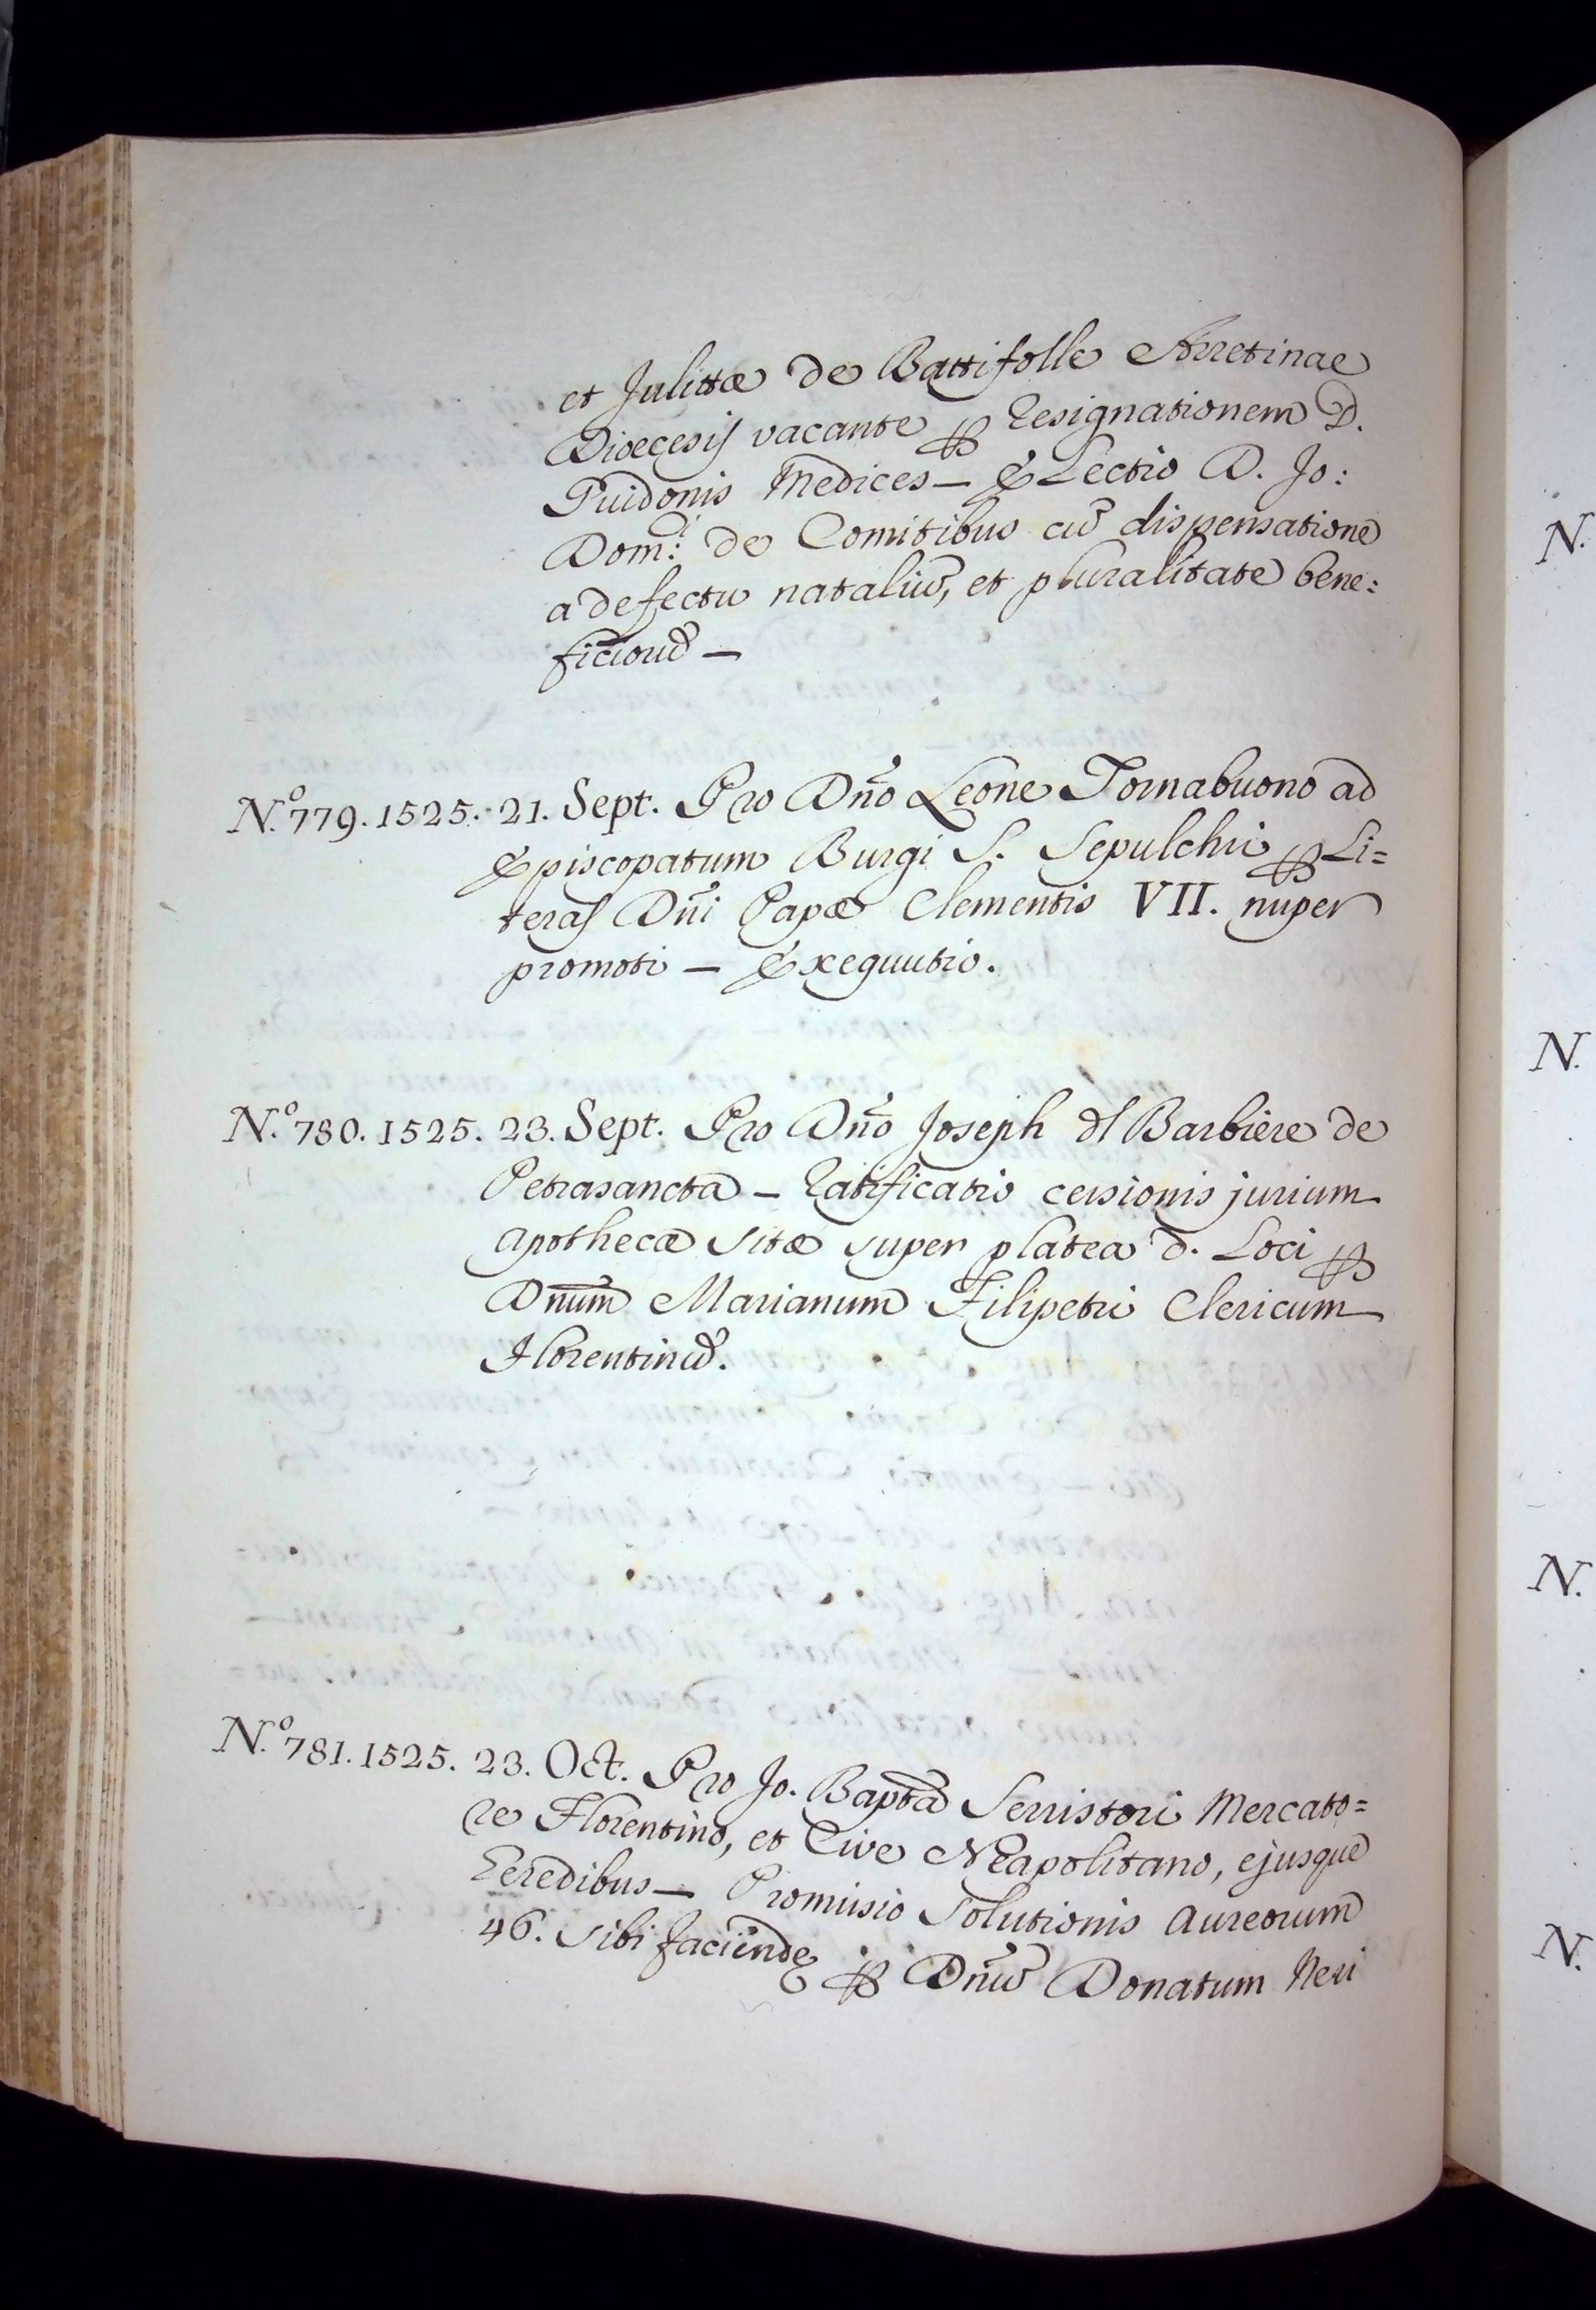 et Julittæ de Battifolle Arretinae
Diœcesis vacante ꝑ Resignationem D.
Guidonis Medices — Electio D. Jo:
Dom:ci de Comitibus cū dispensatione
a defectu nataliū, et pluralitate bene:
ficiorū —
N.º 779. 1525. 21. Sept. Pro Dño Leone Tornabuono ad
Episcopatum Burgi S. Sepulchri ꝑ Li=
teras Dñi Papæ Clementis VII. nuper
promoti — Exequutio.
N.º 780. 1525. 23. Sept. Pro Dño Joseph dl Barbiere de
Petrasancta — Ratificatio cessionis jurium
apothecæ sitæ super platea d. Loci ꝑ
Dnum Marianum Filipetri Clericum
Florentinū.
N.º 781. 1525. 23. Oct. Pro Jo. Bapta Serristori Mercato=
re Florentino, et Cive Neapolitano, ejusque
Heredibus — Promissio Solutionis aureorum
46. sibi faciendę ꝑ Dnū Donatum Neri
N.
N.
N.
N.